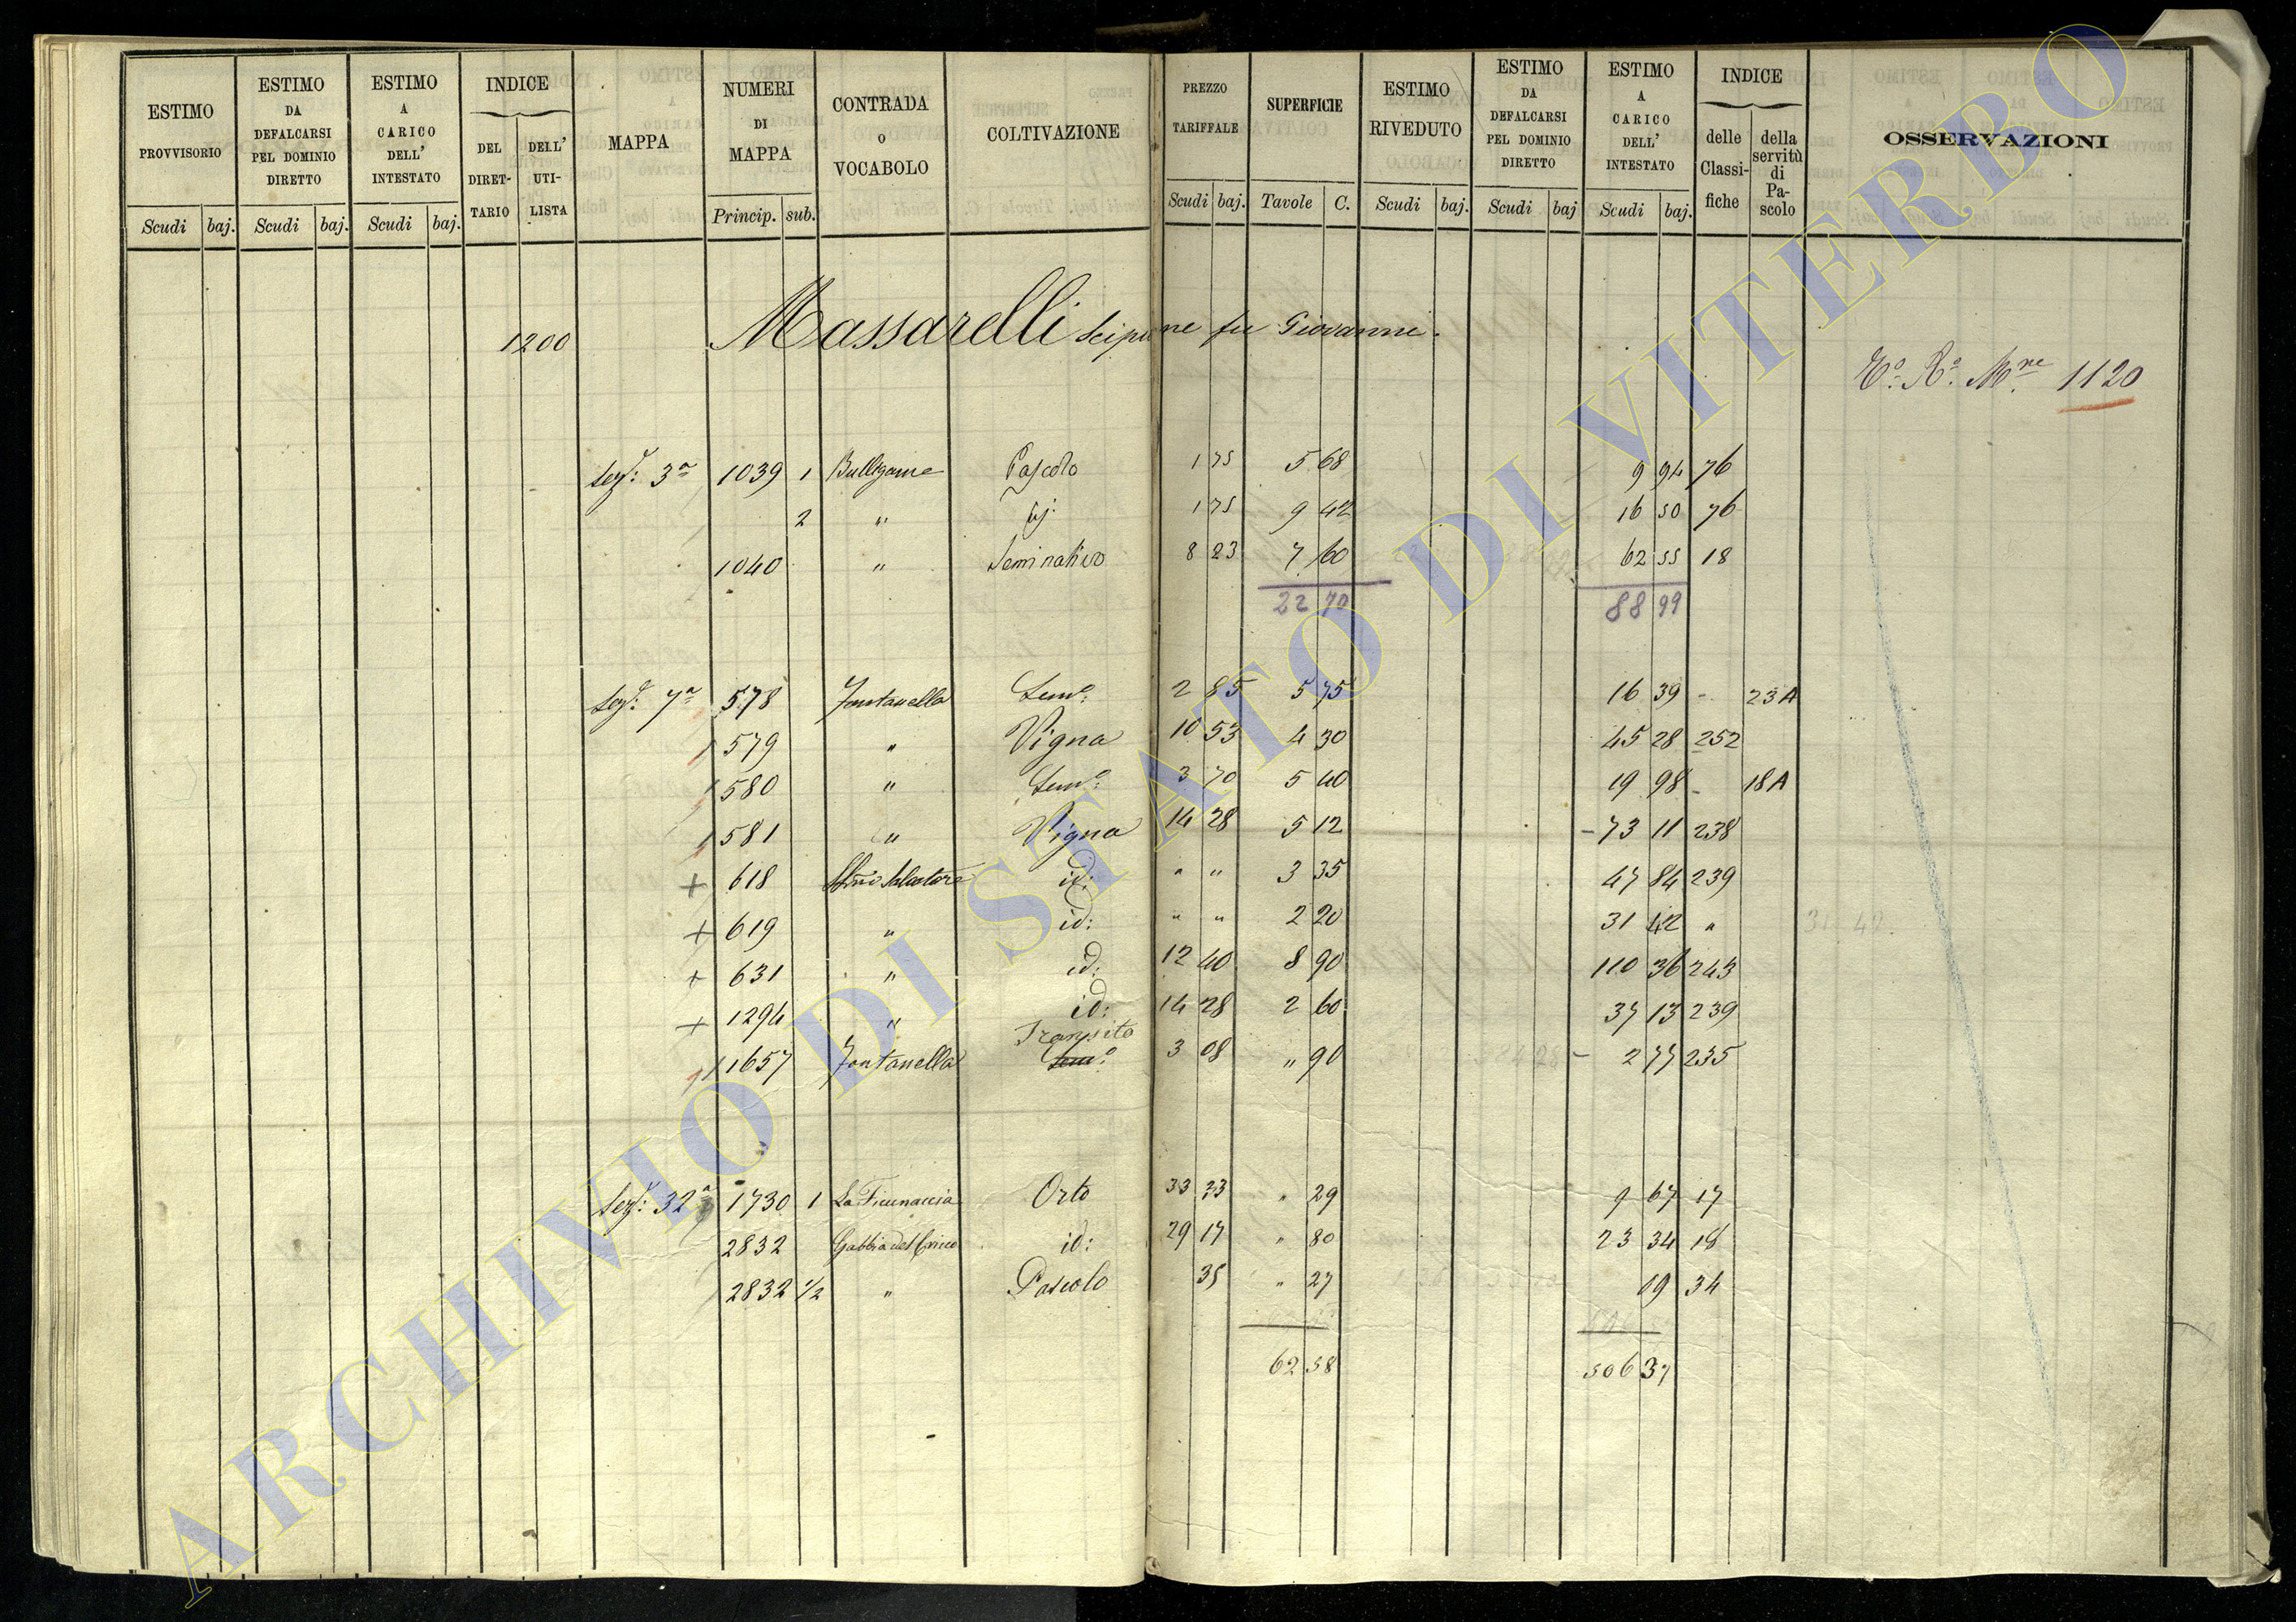 ESTIMO PROVVISORIO Scudi baj.
ESTIMO DA DEFALCARSI PEL DOMINIO DIRETTO Scudi baj.
ESTIMO A CARICO DELL' INTESTATO Scudi baj.
INDICE DEL DIRET-TARIO DELL' UTI-LISTA
MAPPA
NUMERI DI MAPPA Princip. sub.
CONTRADA o VOCABOLO
COLTIVAZIONE
PREZZO TARIFFALE Scudi baj.
SUPERFICIE Tavole C.
ESTIMO RIVEDUTO Scudi baj.
ESTIMO DA DEFALCARSI PEL DOMINIO DIRETTO Scudi baj
ESTIMO A CARICO DELL' INTESTATO Scudi baj.
INDICE delle Classi-fiche della servitù di Pa-scolo
OSSERVAZIONI
1200 Massarelli Scipione fu Giovanni.
1120
Sez: 3a 1039 1 Bulligame Pascolo 1 75 5 68 9 94 76
2 " id. 1 75 9 42 16 50 76
1040 " Seminativo 8 23 7 60 62 55 18
22 70 88 99
Sez: 7a 578 Fontanella Semo: 2 85 5 75 16 39 - 23A
579 " Vigna 10 53 4 30 45 28 252
580 " Semo: 3 70 5 40 19 98 - 18A
581 " Vigna 14 28 5 12 73 11 238
+ 618 Salvatore id: " " 3 35 47 84 239
+ 619 " id: " " 2 20 31 42 " 31 42
+ 631 " id: 12 40 8 90 110 36 243
+ 1294 " id: 14 28 2 60 37 13 239
Transito
1657 Fontanella Semo: 3 08 " 90 2 77 235
Sez: 32a 1730 1 La Ficunaccia Orto 33 33 " 29 9 67 17
2832 Gabbia del Cricco id: 29 17 " 80 23 34 18
2832 1/2 " Pascolo 35 " 27 09 34
62 58 506 37
ARCHIVIO DI STATO DI VITERBO